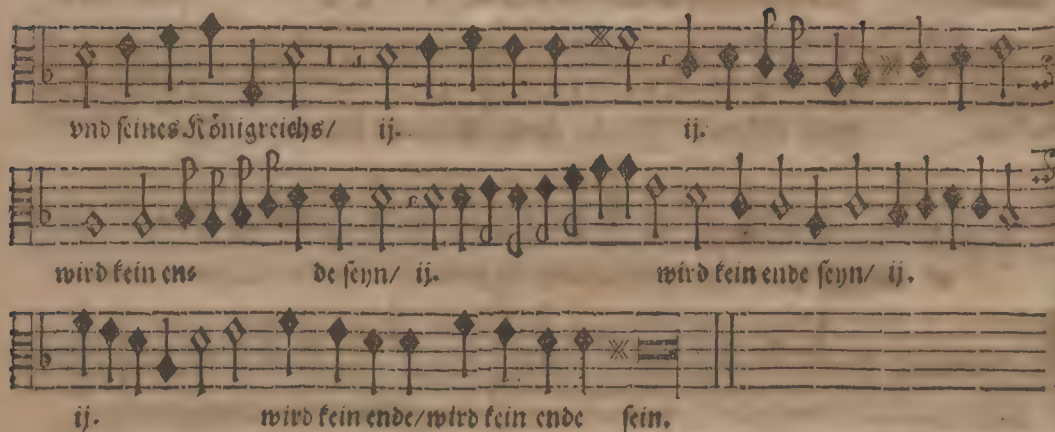 vnd seines Königreichs/ ij. ij.
wird kein ens de seyn/ ij. wird kein ende seyn/ ij.
ij. wird kein ende/wird kein ende sein.